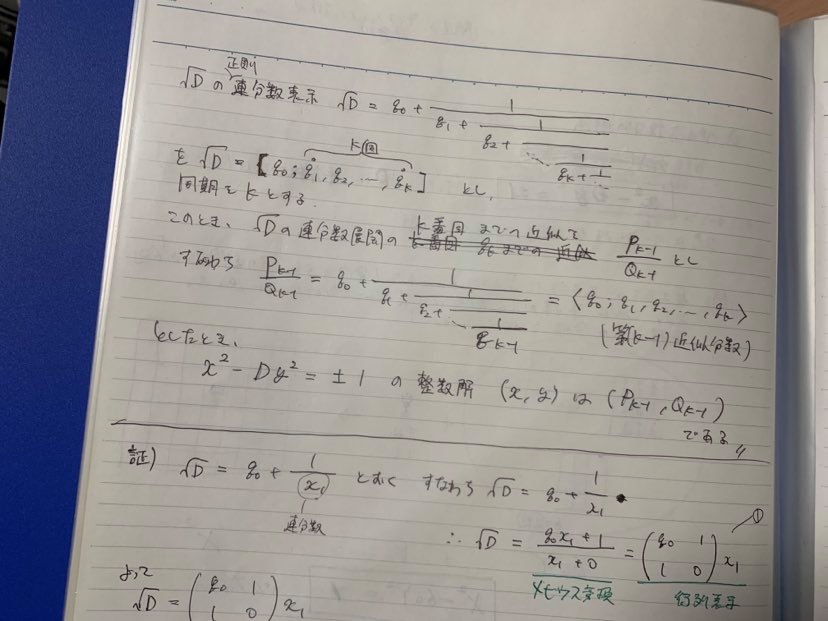 正則
√D の 連分数表示 √D = q0 + 1/(q1 + 1/(q2 + ⋱ 1/(qk + 1/
k個
を √D = [q0; q̇1, q2, …, q̇k] とし、
周期を k とする。
このとき、√D の 連分数展開の k番目 までの 近似を P_{k-1}/Q_{k-1} とし
すなわち P_{k-1}/Q_{k-1} = q0 + 1/(q1 + 1/(q2 + ⋱ 1/q_{k-1})) = 〈q0; q1, q2, …, qk〉
(第(k-1)近似分数)
としたとき、
x² - Dy² = ±1 の 整数解 (x, y) は (P_{k-1}, Q_{k-1})
である 〃
証) √D = q0 + 1/x1 とおく すなわち √D = q0 + 1/x1
連分数
①
∴ √D = (q0x1 + 1)/(x1 + 0) = (q0 1 / 1 0) x1
メビウス変換 行列表示
よって
√D = (q0 1 / 1 0) x1